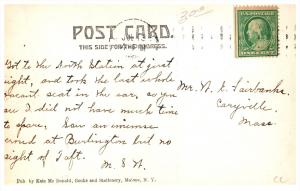 300
POST CARD.
THIS SIDE FOR THE ADDRESS.
Got to the North Station at just
eight, and took the last whole
vacant seat in the car, so you
see I did not have much time
to spare. Saw an immense
crowd at Burlington but no
sight of Taft.
M. S. H.
Mr. N. E. Fairbanks.
Caryville.
Mass.
Pub. by Kate Mc Donald, Books and Stationery, Malone, N. Y.